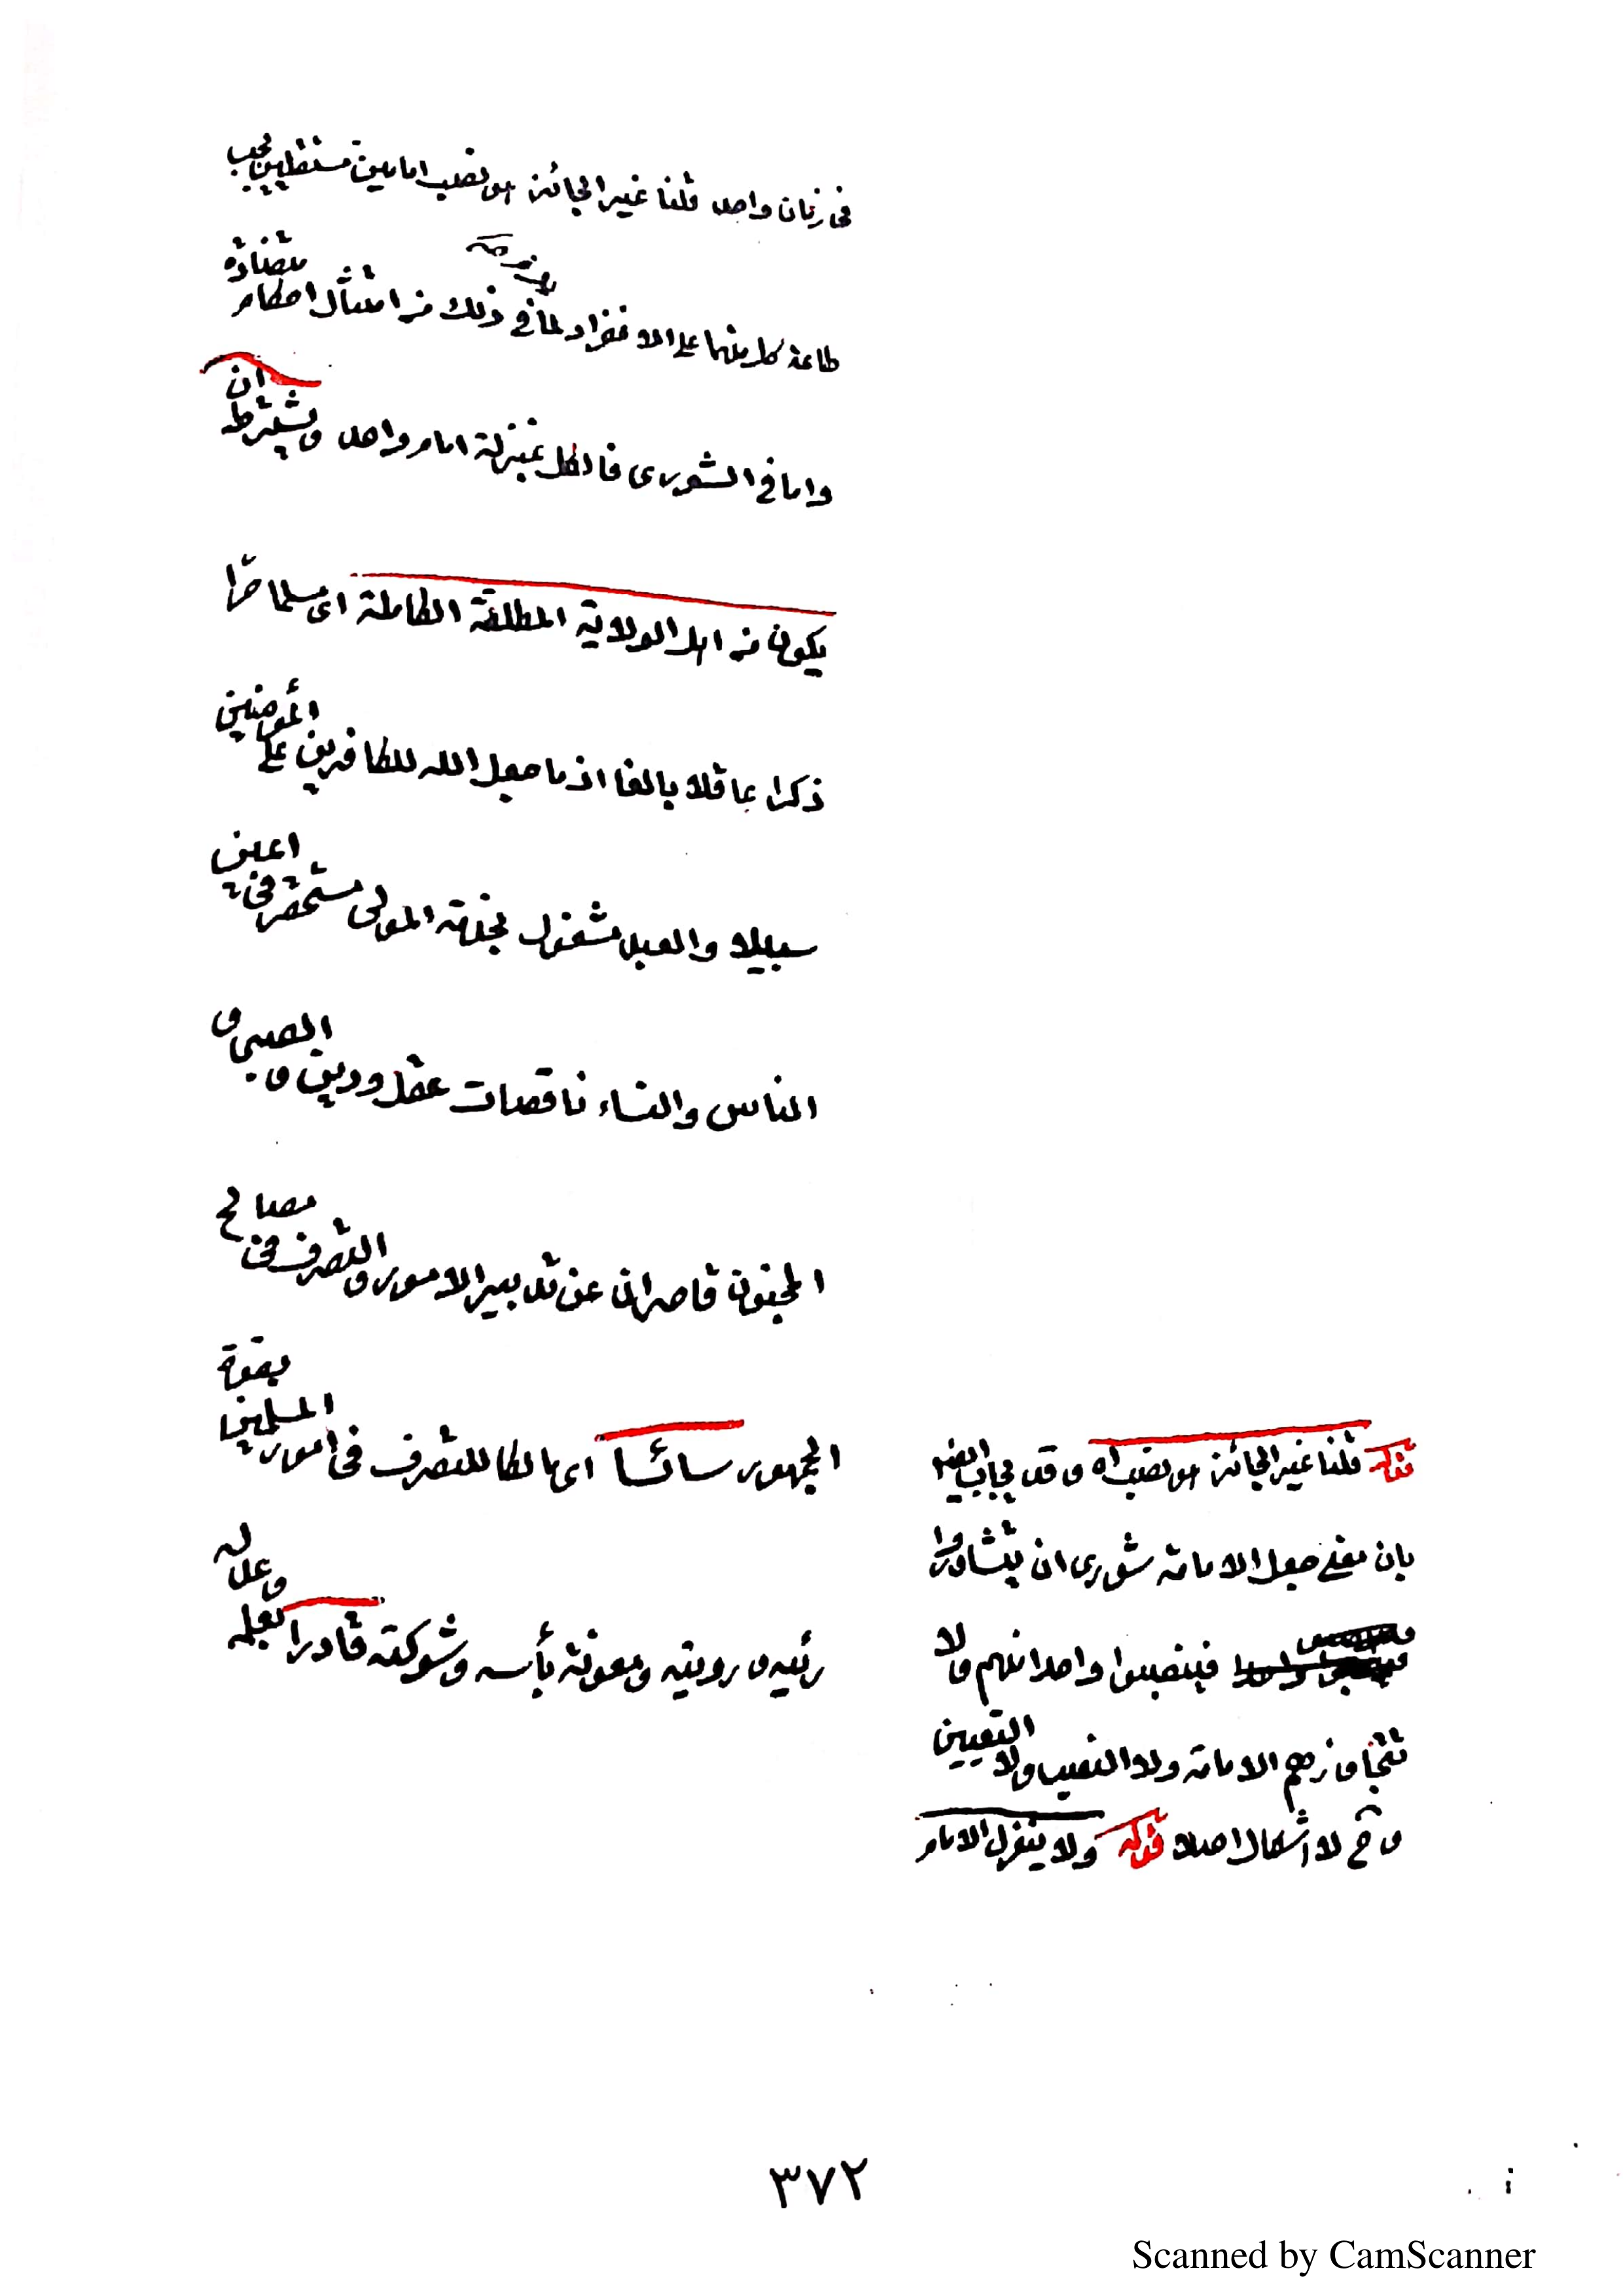 في زمان واحد قلنا غير الجائز هو نصب امامين مستقلين يجب
طاعة كل منهما على الانفراد لما في ذلك من امتثال احكام متضادة
واما في الشورى فالكل بمنزلة امام واحد ويشترط ان
يكون من اهل الولاية المطلقة الكاملة اى مسلما حرا
ذكرا عاقلا بالغا اذ ما جعل الله للكافرين على المؤمنين
سبيلا والعبد مشغول بخدمة المولى مستحقر في اعين
الناس والنساء ناقصات عقل ودين والصبي و
المجنون قاصران عن تدبير الامور والتصرف في مصالح
الجمهور سائسا اى مالكا للتصرف في امور المسلمين بقوة
رئيه و رويته ومعونة بأسه وشوكته قادرا بعلمه وعدله
قوله قلنا غير الجائز هو نصب اه وقد يجاب ايضا
بان معنى جعل الامامة شورى ان يتشاوروا
فينصبوا واحدا منهم ولا
تتجاوزهم الامامة ولا النصب ولا التعيين
وح لا اشكال اصلا قوله ولا ينعزل الامام
٣٧٢
Scanned by CamScanner